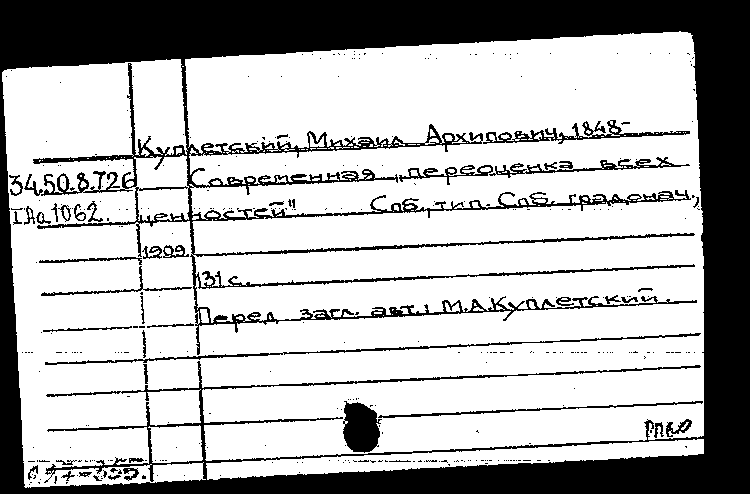 Куплетский, Михаил Архипович, 1848-
34.50.8.726 Современная „переоценка всех
IAa1062. ценностей" Спб., тип. Спб. градонач.,
1909
131 с.
Перед загл. авт.: М.А.Куплетский.